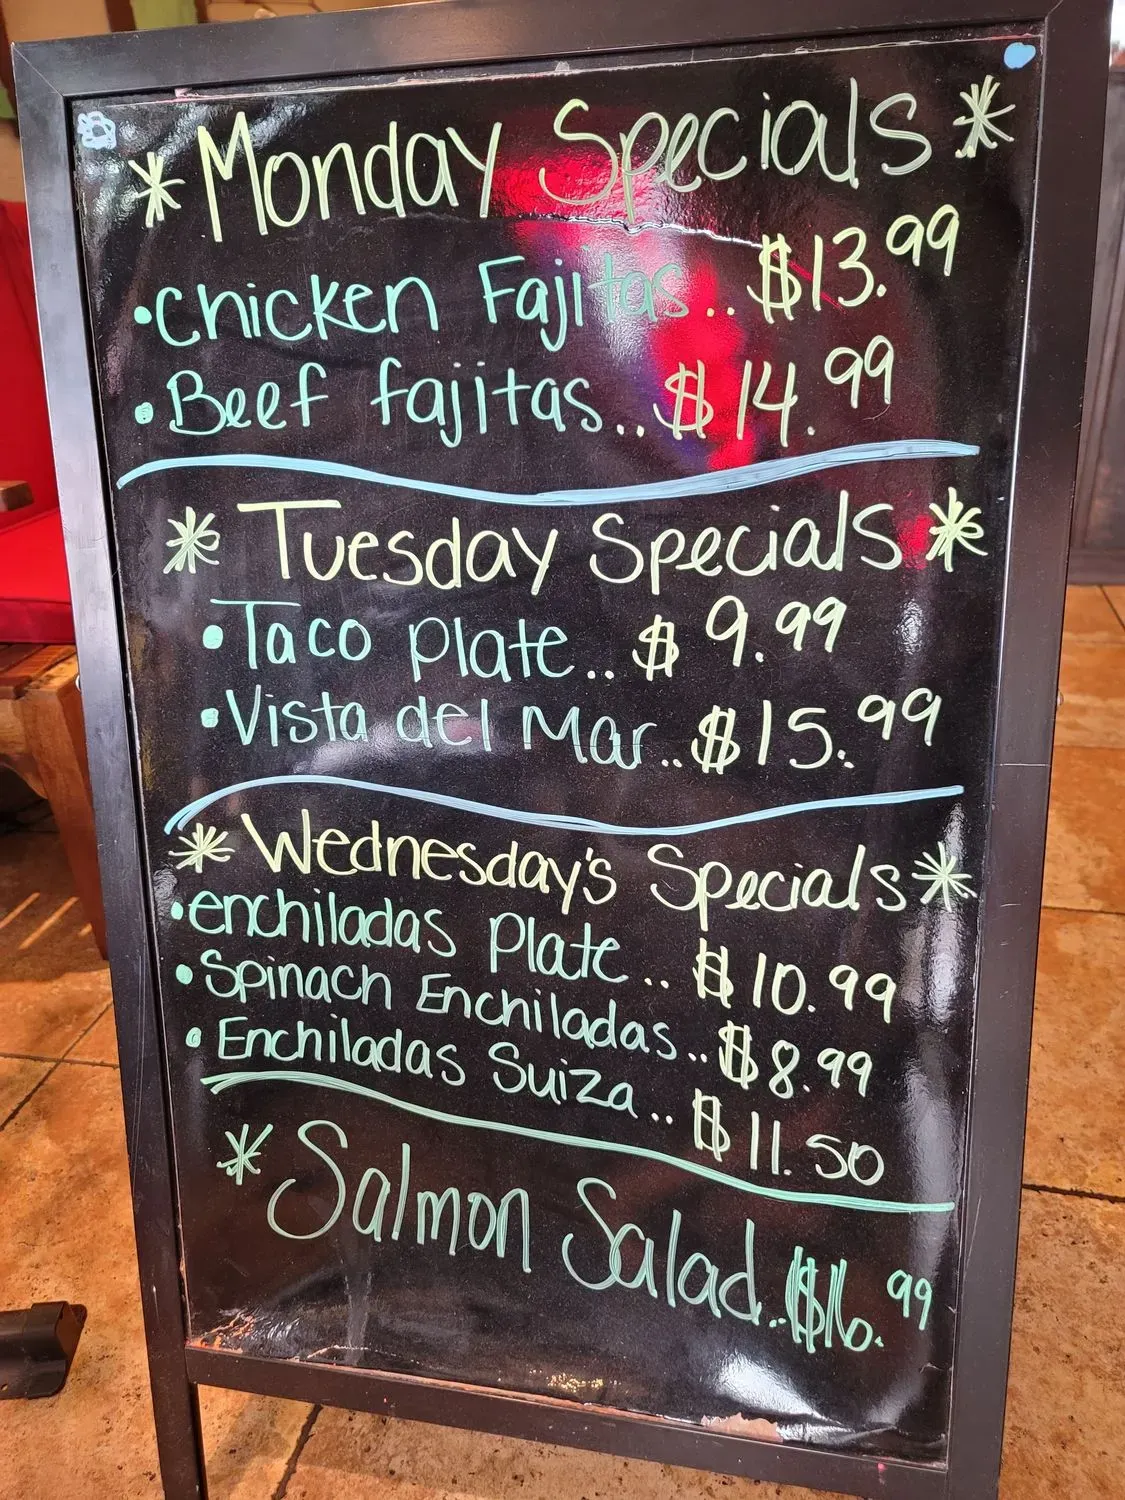 * Monday Specials *
• Chicken Fajitas.. $13.99
• Beef fajitas.. $14.99
* Tuesday Specials *
• Taco Plate.. $9.99
• Vista del Mar.. $15.99
* Wednesday's Specials *
• enchiladas Plate.. $10.99
• Spinach Enchiladas.. $8.99
• Enchiladas Suiza.. $11.50
* Salmon Salad..$16.99